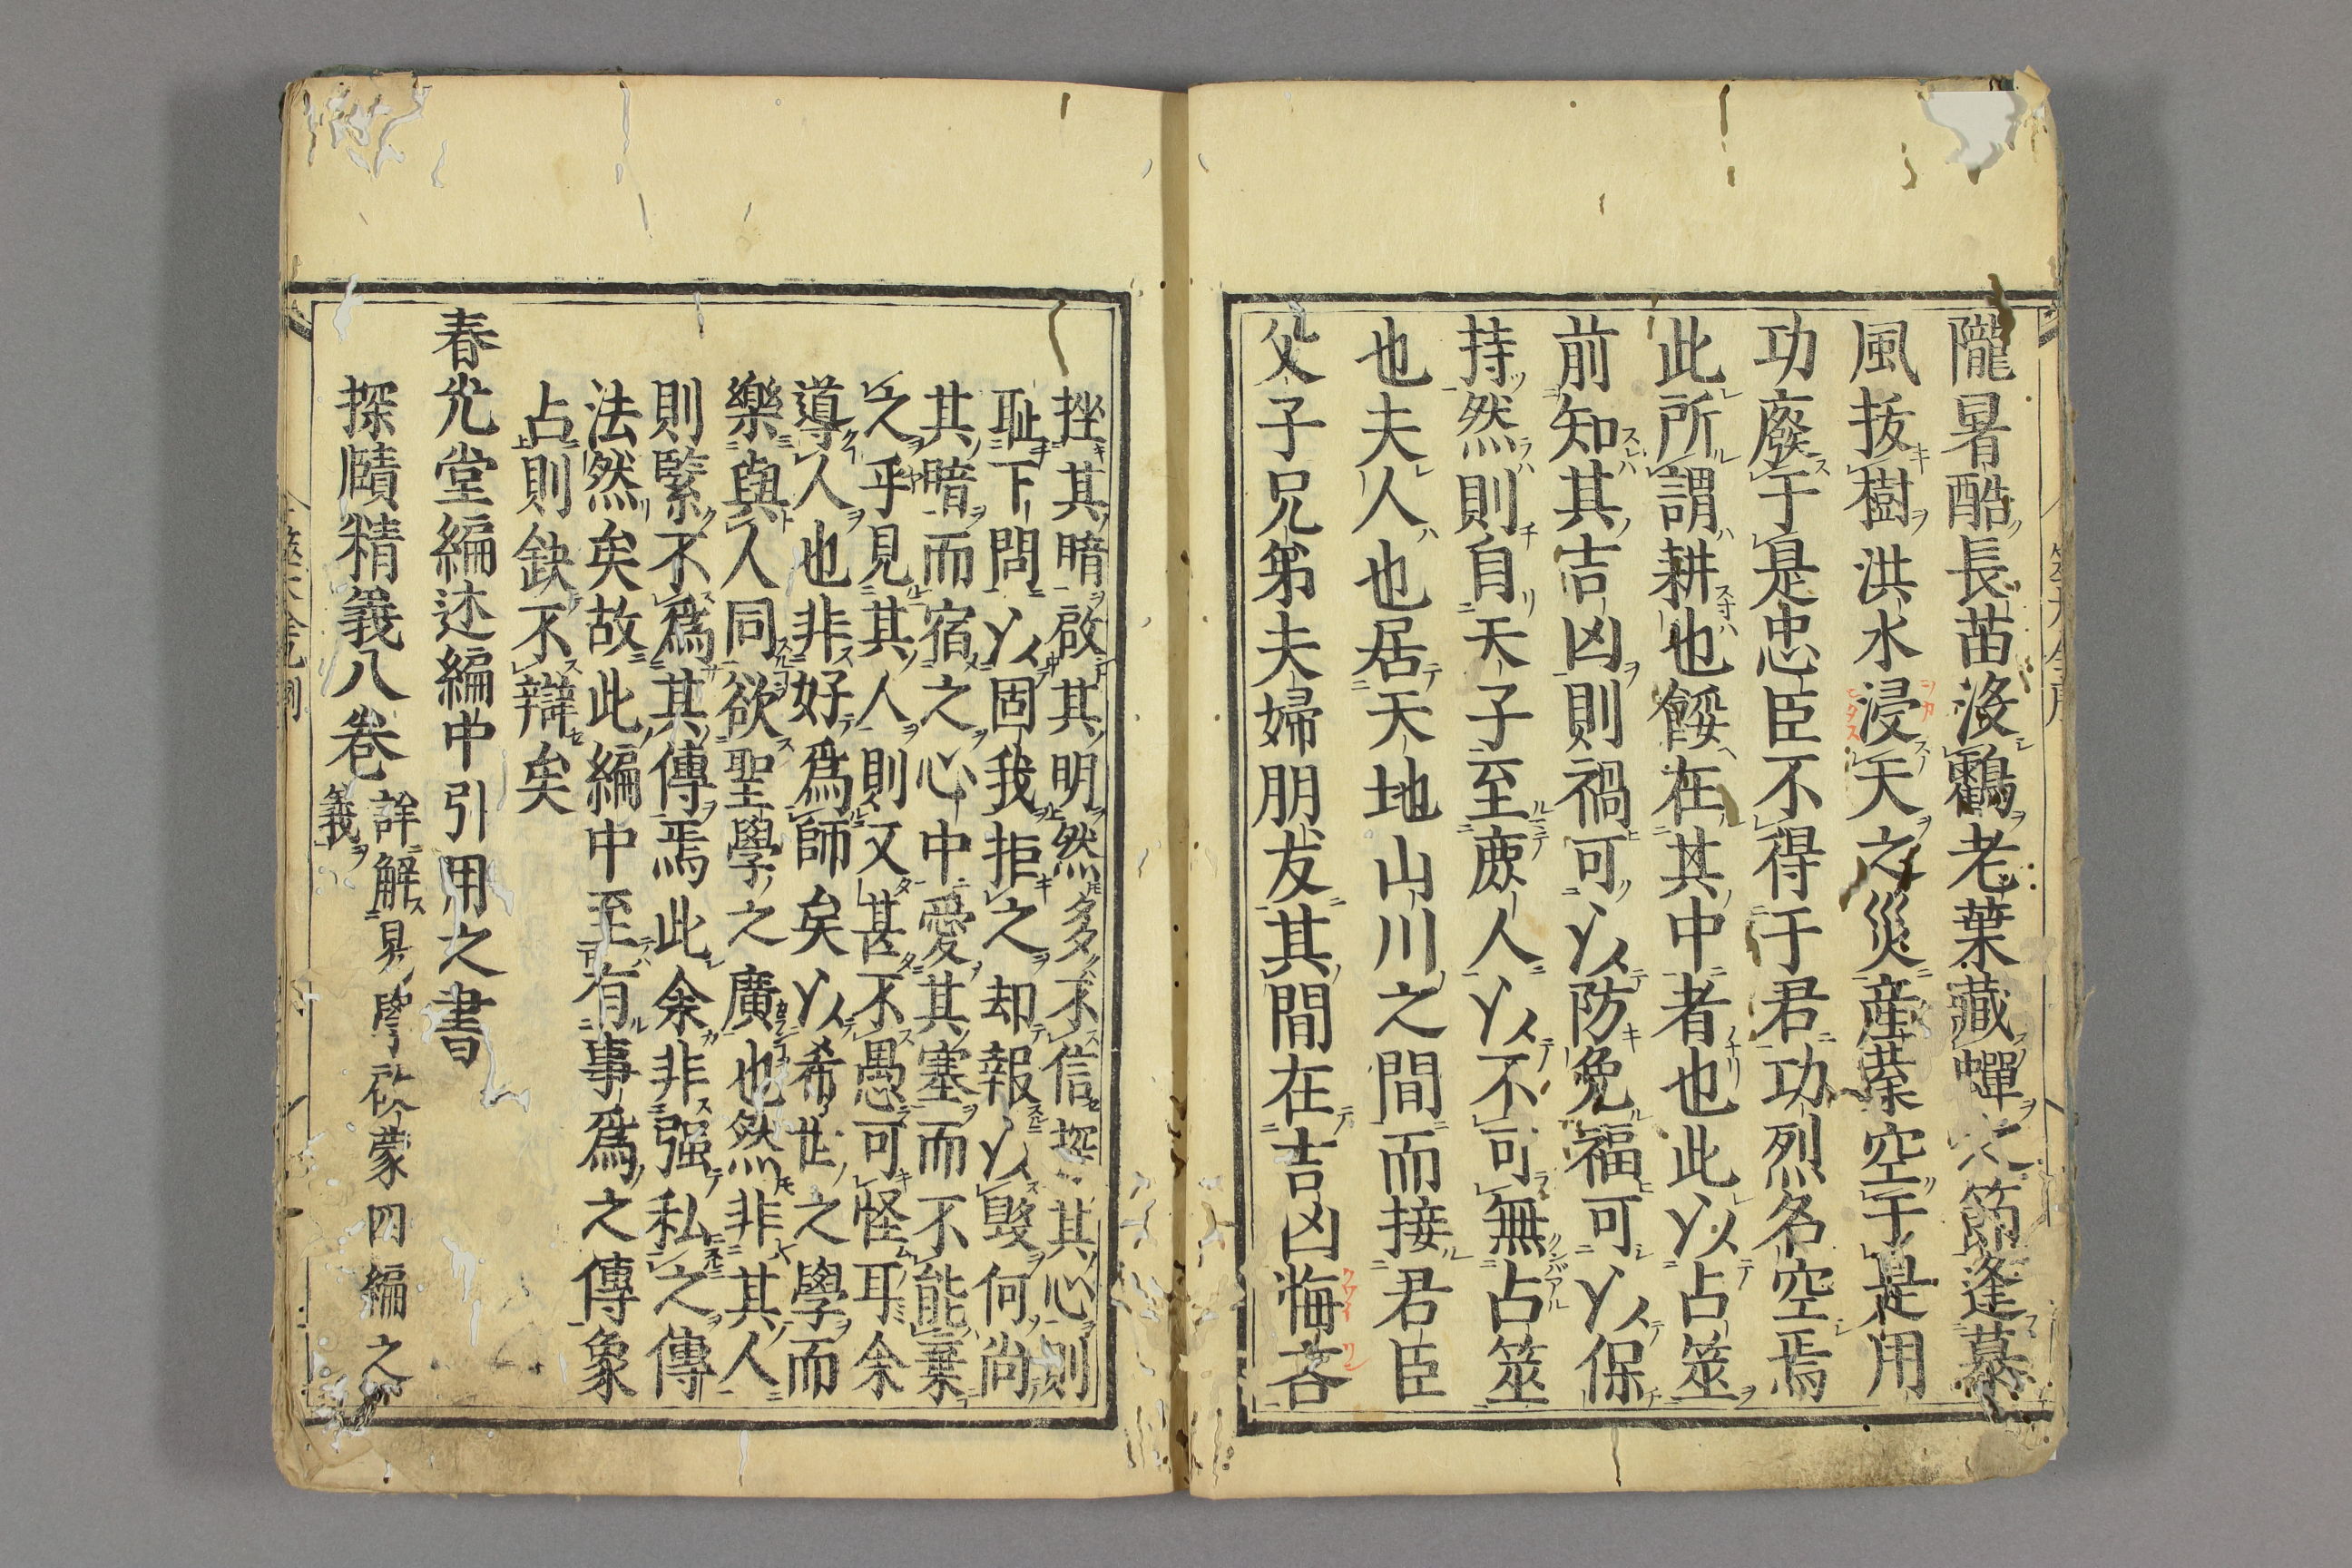 隴暑酷長苗沒鸛老葉藏蟬之節逢暴
風拔樹洪水浸天之災産業空于是用
功廢于是忠臣不得于君功烈名空焉
此所謂耕也餒在其中者也此以占筮
前知其吉凶則禍可以防免福可以保
持然則自天子至庶人以不可無占筮
也夫人也居天地山川之間而接君臣
父子兄弟夫婦朋友其間在吉凶悔吝
挫其暗啟其明然多不信挫其心則
耻下問以固我拒之却報以毀何尚
其暗而宿之心中愛其塞而不能棄
之乎見其人則又甚不愚可怪耳余
導人也非好爲師矣以希世之學而
樂與人同欲聖學之廣也然非其人
則緊不爲其傳焉此余非强私之傳
法然矣故此編中至有事爲之傳象
占則缺不辯矣
春光堂編述編中引用之書
探賾精義八巻
詳解見學啓蒙四編之
義